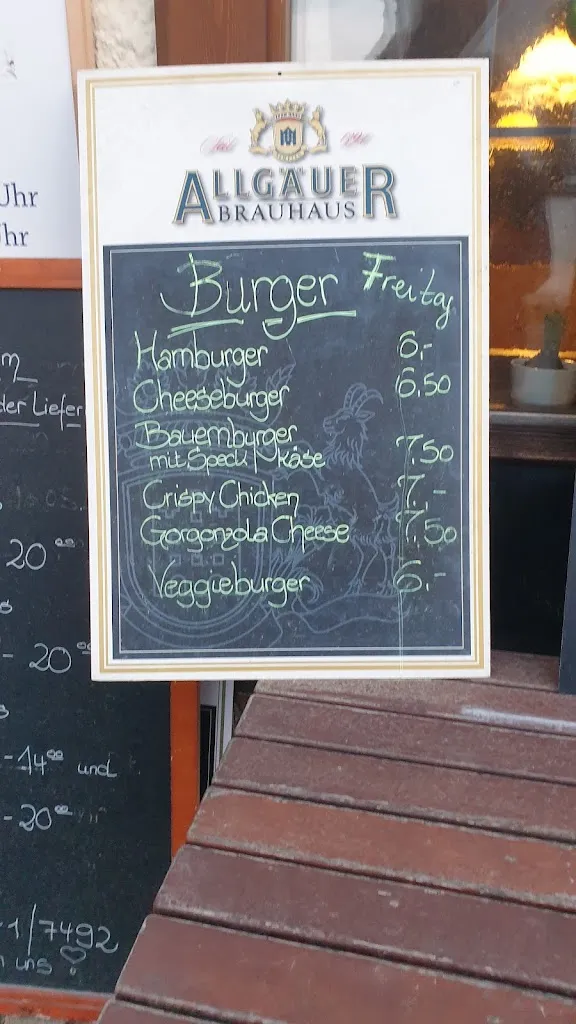 Uhr
Uhr
ALLGÄUER
BRAUHAUS
Burger Freitag
Hamburger 6,-
Cheeseburger 6,50
Bauernburger
mit Speck / Käse 7,50
Crispy Chicken 7,-
Gorgonzola Cheese 7,50
Veggieburger 6,-
der Liefer
20⁰⁰
- 20⁰⁰
-14⁰⁰ und
- 20⁰⁰
1/7492
uns